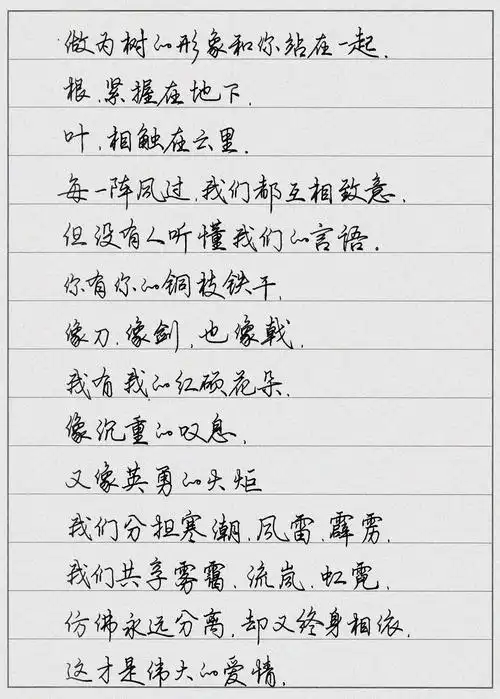 做为树的形象和你站在一起.
根.紧握在地下.
叶.相触在云里.
每一阵风过.我们都互相致意.
但没有人听懂我们的言语.
你有你的铜枝铁干,
像刀.像剑,也像戟.
我有我的红硕花朵.
像沉重的叹息,
又像英勇的火炬
我们分担寒潮.风雷.霹雳.
我们共享雾霭.流岚.虹霓.
仿佛永远分离.却又终身相依.
这才是伟大的爱情.